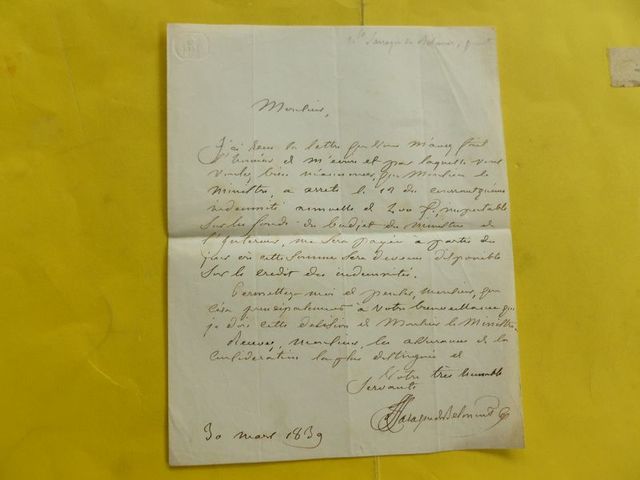 Monsieur,
J'ai reçu la lettre que vous m'avez fait
l'honneur de m'écrire et par laquelle vous
voulez bien m'annoncer, que Monsieur le
Ministre, a arrêté le 12 du courant qu'une
indemnité annuelle de 200 f. imputable
sur les fonds du budget du ministre de
l'Intérieur, me sera payée à partir du
jour où cette somme sera devenue disponible
sur le crédit des indemnités.
Permettez-moi de penser, Monsieur, que
c'est principalement à votre bienveillance que
je dois cette décision de Monsieur le Ministre.
Recevez, Monsieur, les assurances de la
considération la plus distinguée de
Votre très humble
Servante
30 mars 1839